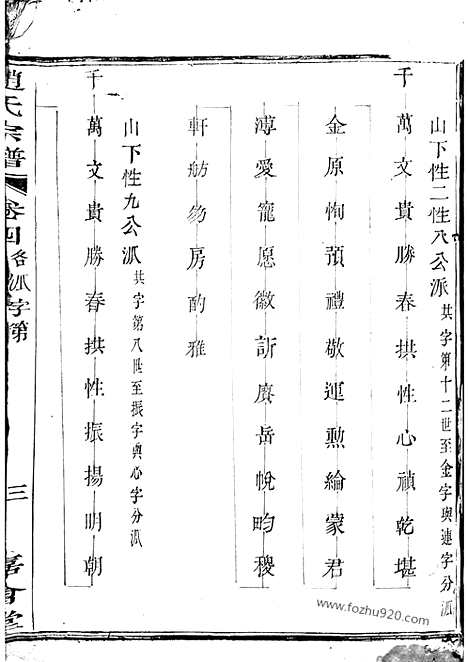 山下性二性八公派 共字第十二世至金字與連字分派
千萬文貴勝春拱性心禎乾堪
金原恂預禮敬運勲綸蒙君
溥愛寵愿徽訢賡岳帨昀稷
軒舫芴房酌雅
山下性九公派 共字第八世至振字與心字分派
千萬文貴勝春拱性振揚明朝
趙氏宗譜
卷四 各派字第
三
堂
www.fozhu920.com